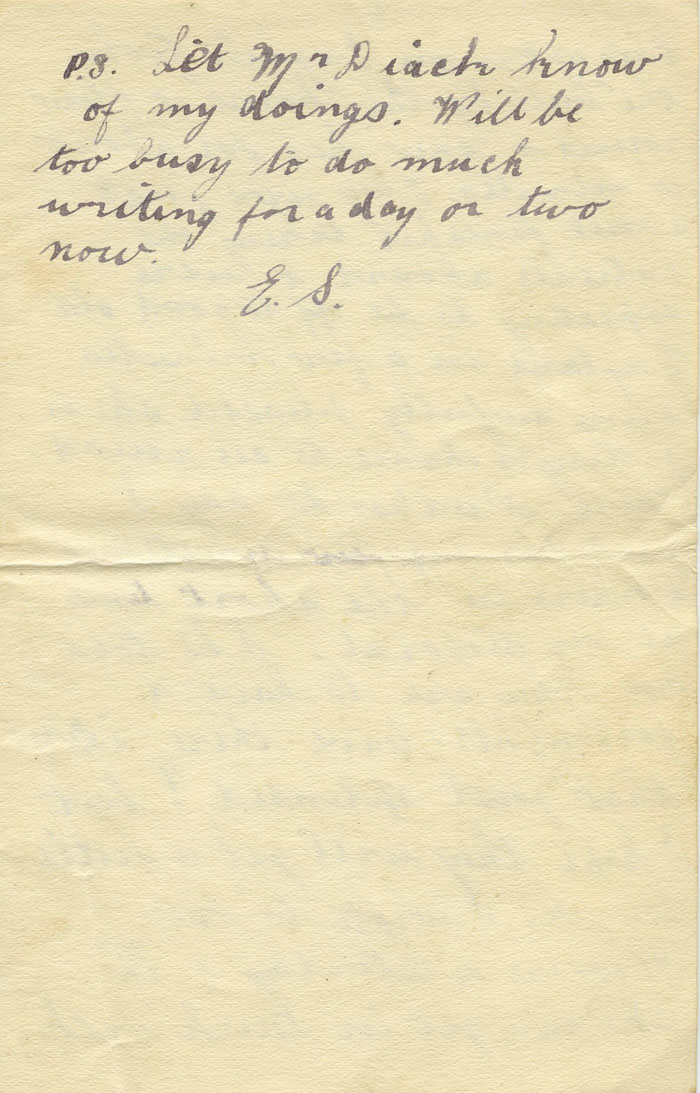 P.S. Let Mr Diack know
of my doings. Will be
too busy to do much
writing for a day or two
now.
E. S.